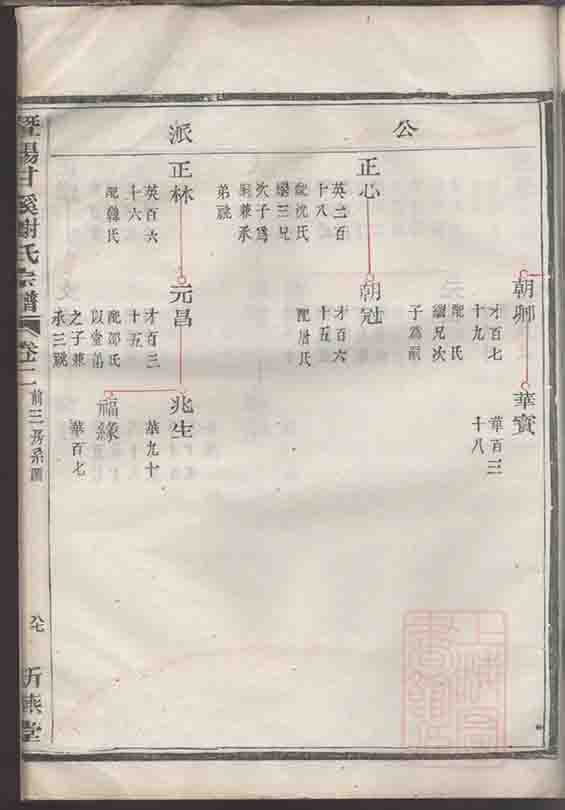 公
派
朝卿
才百七
十九
配 氏
繼兄次
子為嗣
華寶
華百三
十八
正心
英二百
十八
配沈氏
次子為
弟祧
朝冠
才百六
十五
配屠氏
正林
英百六
十六
配韓氏
元昌
才百三
十五
配邵氏
以堂弟
之子兼
承三祧
兆生
華九十
福緣
華百七
暨陽甘溪謝氏宗譜
卷二
前三房系圖
八七